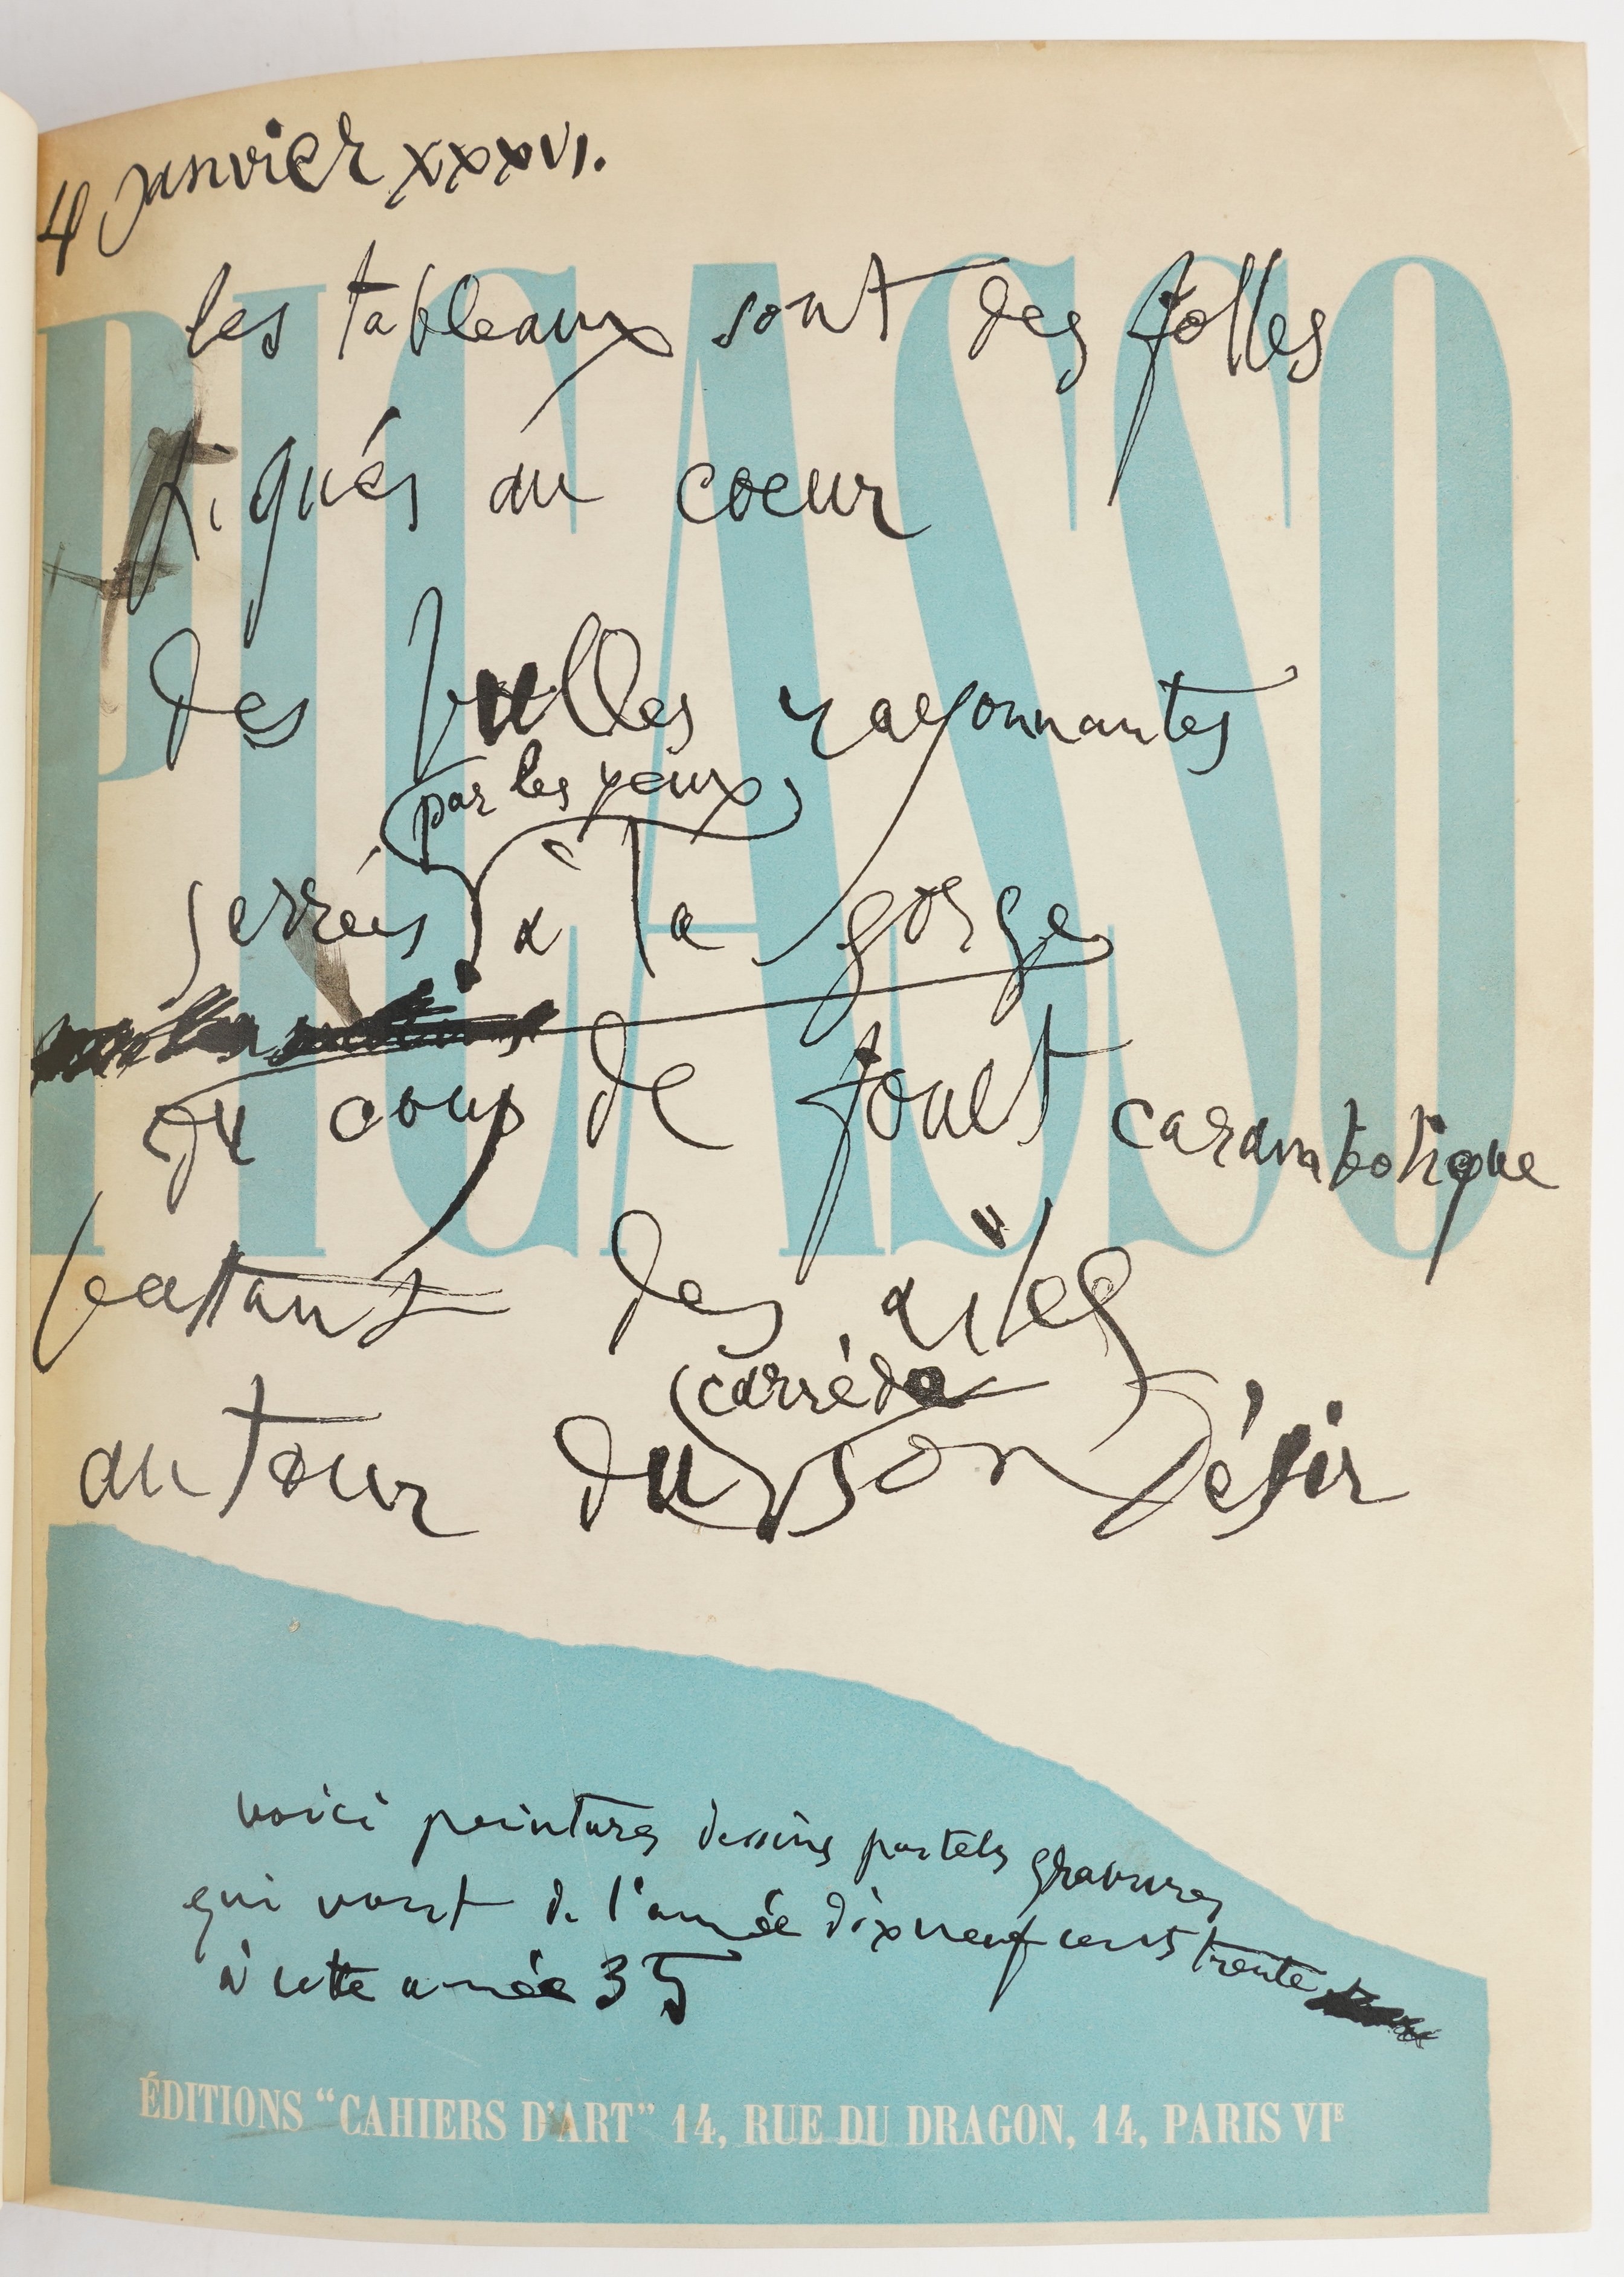 4 Janvier XXXVI.
PICASSO
les tableaux sont des folles
piqués au coeur
des bulles rayonnantes
par les yeux
serrées à la gorge
du coup de fouet
battant des ailes
carré de
autour du son désir
voici peintures dessins pastels gravures
qui vont de l'année dixneufcents trente
à cette année 35
ÉDITIONS "CAHIERS D'ART" 14, RUE DU DRAGON, 14, PARIS VIE